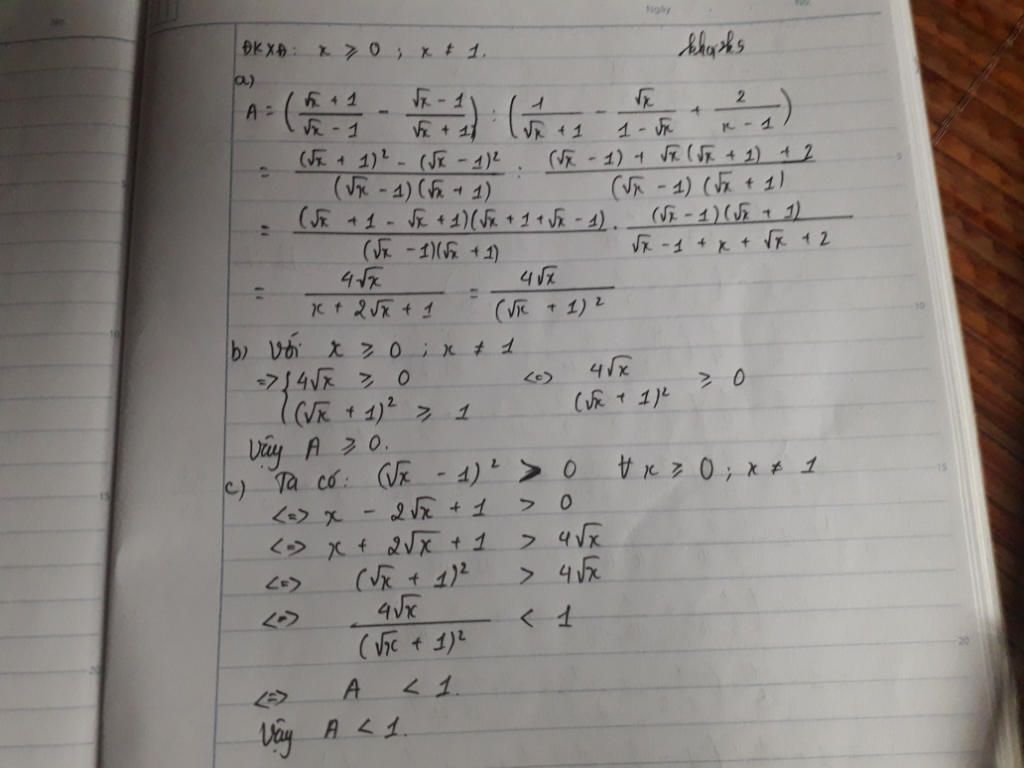 Ngày
No.
ĐKXĐ: x ≥ 0 ; x ≠ 1.
a)
A = ( (√x + 1)/(√x - 1) - (√x - 1)/(√x + 1) ) : ( 1/(√x + 1) - √x/(1 - √x) + 2/(x - 1) )
= ((√x + 1)² - (√x - 1)²)/((√x - 1)(√x + 1)) : ((√x - 1) + √x(√x + 1) + 2)/((√x - 1)(√x + 1))
= ((√x + 1 - √x + 1)(√x + 1 + √x - 1))/((√x - 1)(√x + 1)) . ((√x - 1)(√x + 1))/(√x - 1 + x + √x + 2)
= 4√x/(x + 2√x + 1) = 4√x/(√x + 1)²
b) Với x ≥ 0 ; x ≠ 1
=> { 4√x ≥ 0 <=> 4√x/(√x + 1)² ≥ 0
(√x + 1)² ≥ 1
Vậy A ≥ 0.
c) Ta có: (√x - 1)² > 0 ∀ x ≥ 0 ; x ≠ 1
<=> x - 2√x + 1 > 0
<=> x + 2√x + 1 > 4√x
<=> (√x + 1)² > 4√x
<=> 4√x/(√x + 1)² < 1
<=> A < 1.
Vậy A < 1.
5
10
15
20
10
15
20